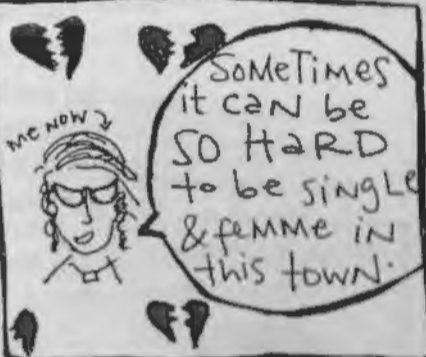 ME NOW
SOMETIMES
it CaN be
SO HaRD
to be siNGLE
& feMME iN
this towN.